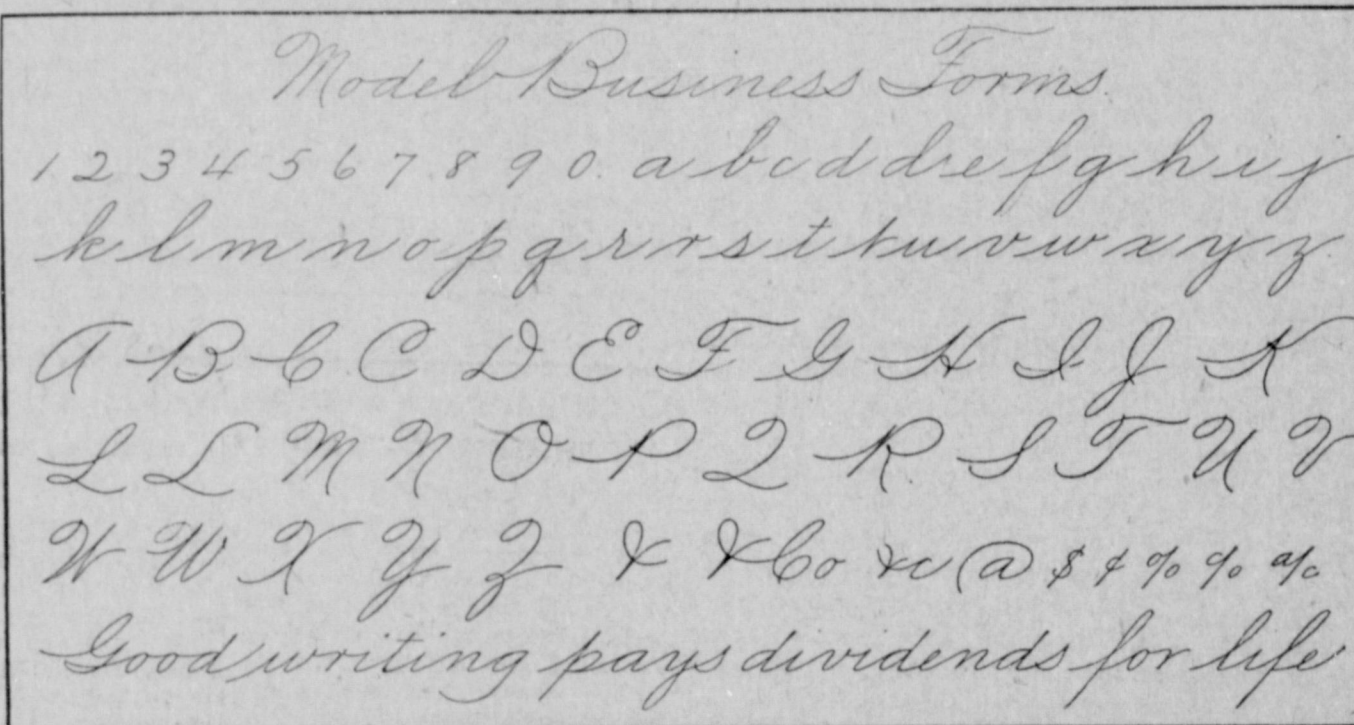 Model Business Forms.
1 2 3 4 5 6 7 8 9 0. a b c d d r e f g h i j
k l m n o p q r r s t t u v w x y z.
A B C C D E F G H I J K
L L M N O P Q R S T U V
W W X Y Z & & Co &c @ $ ¢ % % a/c
Good writing pays dividends for life